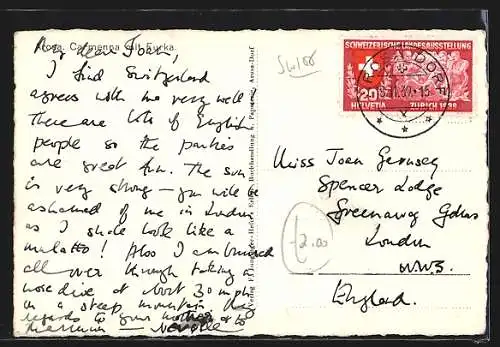 Arosa. Carmenna mit Furka.
My dear Joan,
I find Switzerland
agrees with me very well
There are lots of English
people so the parties
are great fun. The sun
is very strong - you will be
ashamed of me in London
as I shall look like a
mulatto! Also I am bruised
all over through taking a
nose dive at about 30 mph
in a steep mountain
regards to your mother & to
Neville
Swiss
SCHWEIZERISCHE LANDESAUSSTELLUNG
20
HELVETIA ZÜRICH 1939
DORF
Miss Joan Gernsey
Spencer Lodge
Greenaway Gdns
London
N.W.3.
England.
£2.00